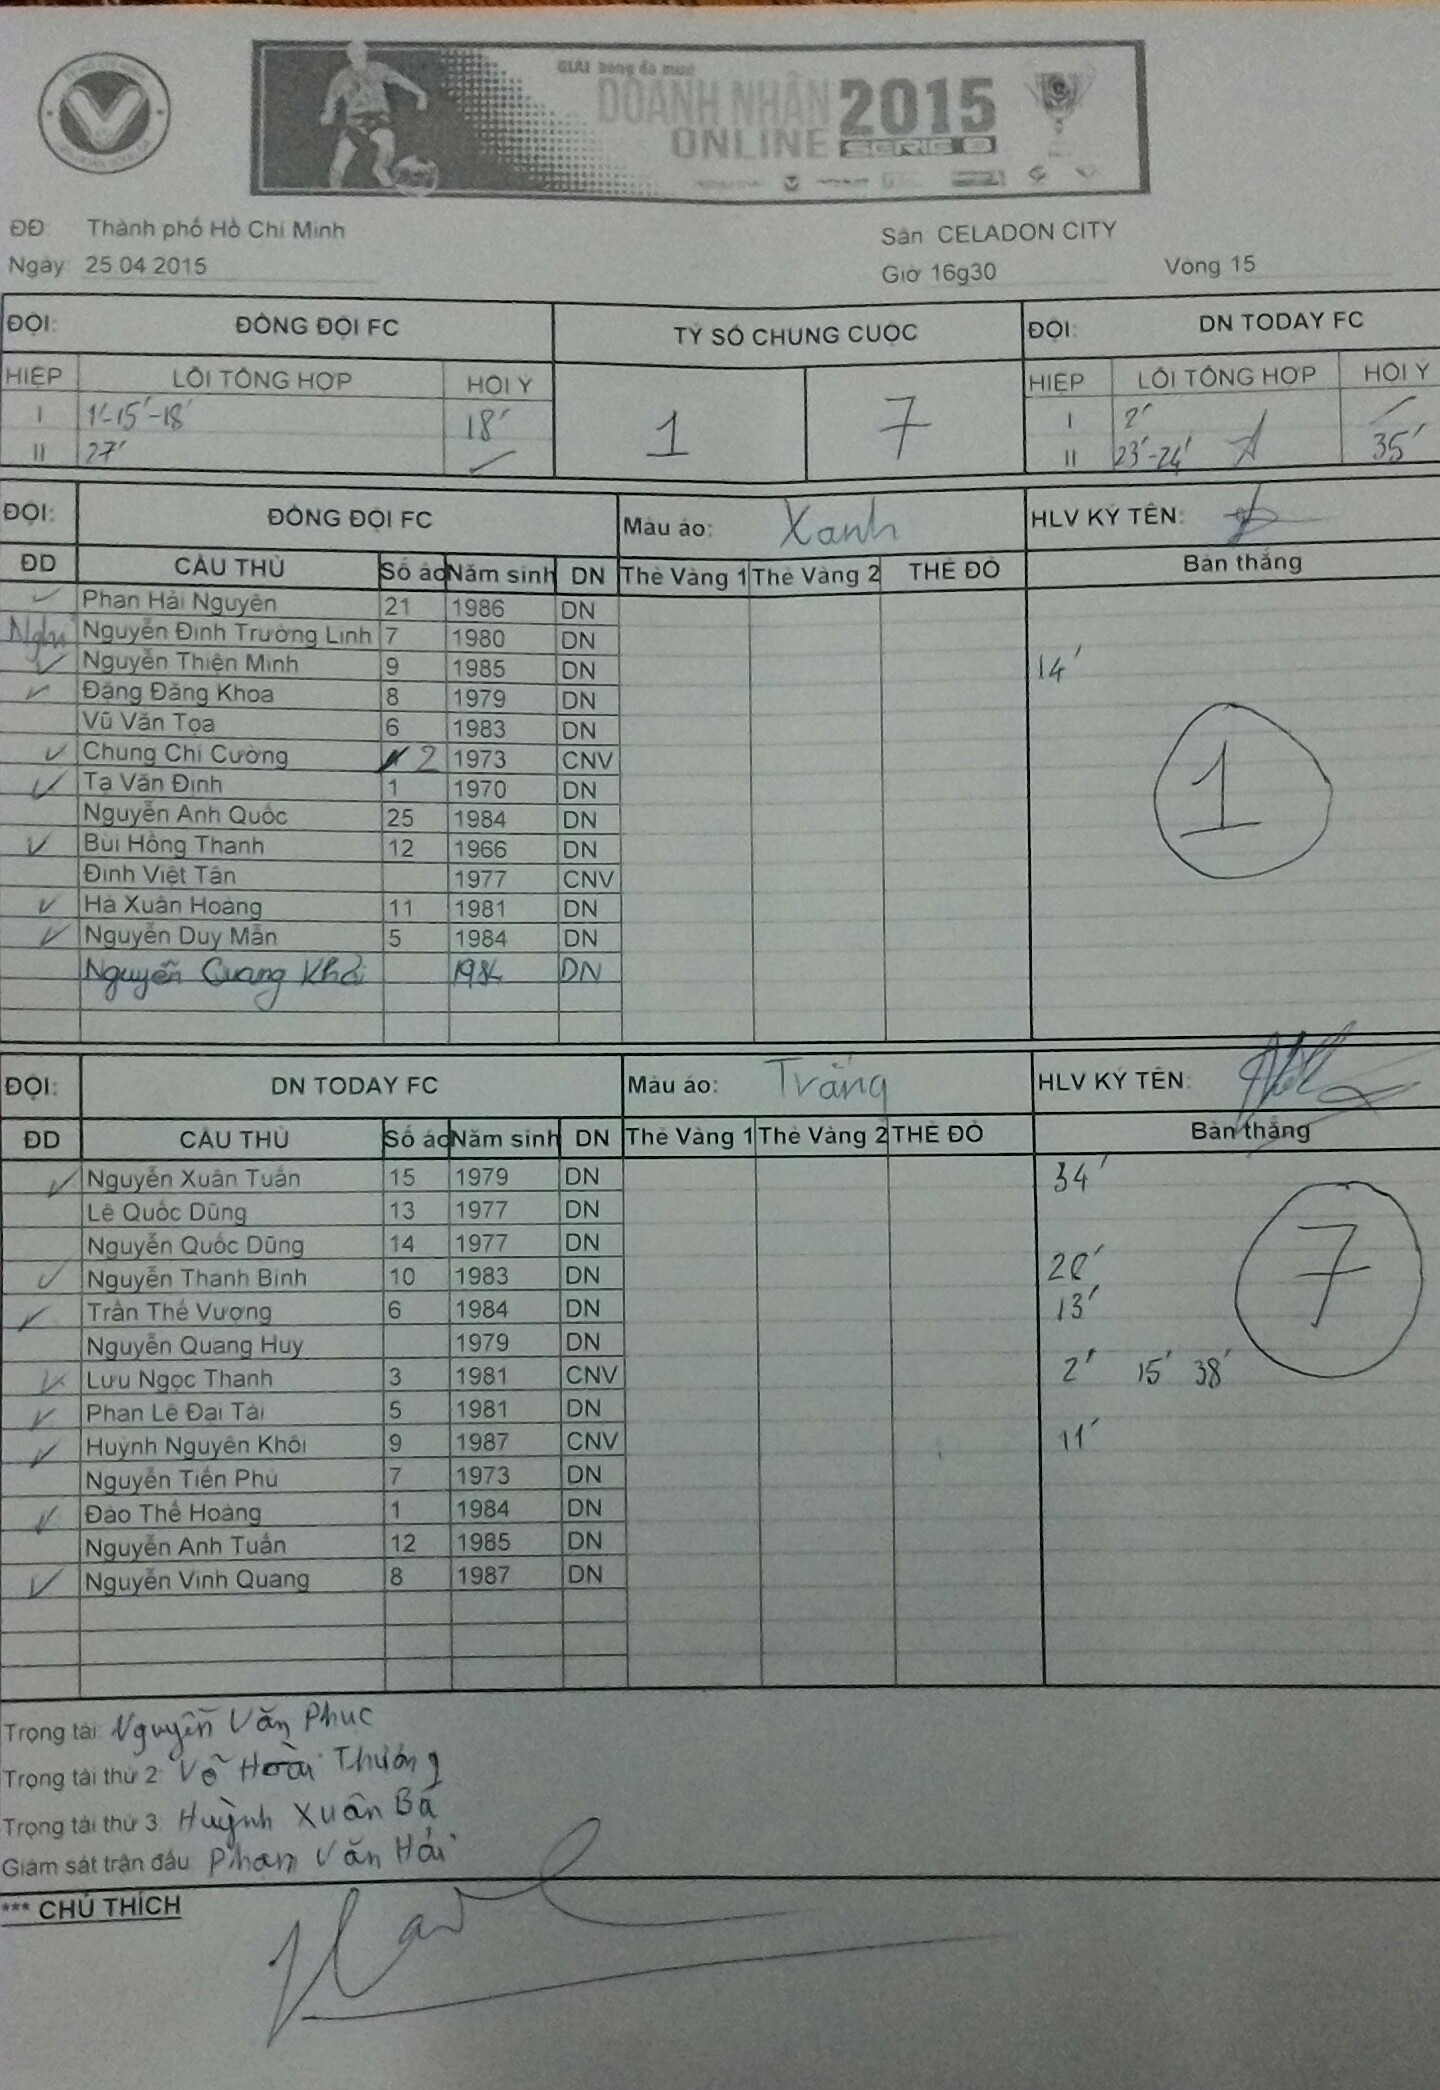 GIẢI bóng đá mini
DOANH NHÂN 2015
ONLINE SERIE B
ĐĐ: Thành phố Hồ Chí Minh Sân CELADON CITY
Ngày: 25.04.2015 Giờ 16g30 Vòng 15
ĐỘI: ĐỒNG ĐỘI FC TỶ SỐ CHUNG CUỘC ĐỘI: DN TODAY FC
HIỆP LỖI TỔNG HỢP HỘI Ý 1 7 HIỆP LỖI TỔNG HỢP HỘI Ý
I 1'-15'-18' 18' I 2'
II 27' II 23'-24' 35'
ĐỘI: ĐỒNG ĐỘI FC Màu áo: Xanh HLV KÝ TÊN:
ĐD CẦU THỦ Số áo Năm sinh DN Thẻ Vàng 1 Thẻ Vàng 2 THẺ ĐỎ Bàn thắng
Phan Hải Nguyên 21 1986 DN
Nghỉ Nguyễn Đình Trường Linh 7 1980 DN
Nguyễn Thiện Minh 9 1985 DN 14'
Đặng Đăng Khoa 8 1979 DN
Vũ Văn Tọa 6 1983 DN
Chung Chí Cường 2 1973 CNV
Tạ Văn Định 1 1970 DN 1
Nguyễn Anh Quốc 25 1984 DN
Bùi Hồng Thanh 12 1966 DN
Đinh Việt Tân 1977 CNV
Hà Xuân Hoàng 11 1981 DN
Nguyễn Duy Mẫn 5 1984 DN
Nguyễn Quang Khải DN
ĐỘI: DN TODAY FC Màu áo: Trắng HLV KÝ TÊN:
ĐD CẦU THỦ Số áo Năm sinh DN Thẻ Vàng 1 Thẻ Vàng 2 THẺ ĐỎ Bàn thắng
Nguyễn Xuân Tuấn 15 1979 DN 34'
Lê Quốc Dũng 13 1977 DN
Nguyễn Quốc Dũng 14 1977 DN
Nguyễn Thanh Bình 10 1983 DN 7
Trần Thế Vượng 6 1984 DN 13'
Nguyễn Quang Huy 1979 DN
Lưu Ngọc Thanh 3 1981 CNV 2' 15' 38'
Phan Lê Đại Tài 5 1981 DN
Huỳnh Nguyên Khôi 9 1987 CNV 11'
Nguyễn Tiến Phú 7 1973 DN
Đào Thế Hoàng 1 1984 DN
Nguyễn Anh Tuấn 12 1985 DN
Nguyễn Vinh Quang 8 1987 DN
Trọng tài: Nguyễn Văn Phuc
Trọng tài thứ 2: Võ Hoài Thương
Trọng tài thứ 3: Huỳnh Xuân Bá
Giám sát trận đấu: Phạm Văn Hải
*** CHÚ THÍCH